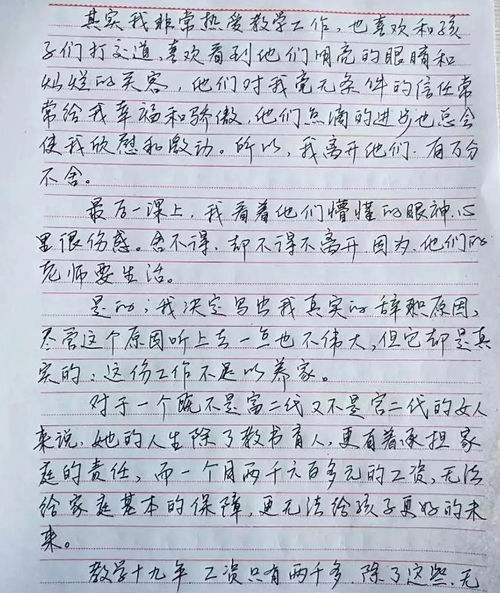 其实我非常热爱教学工作，也喜欢和孩
子们打交道，喜欢看到他们明亮的眼睛和
灿烂的笑容，他们对我毫无条件的信任常
常给我幸福和骄傲，他们点滴的进步也总会
使我欣慰和激动。所以，我离开他们，有万分
不舍。
最后一课上，我看着他们懵懂的眼神，心
里很伤感。舍不得，却不得不离开，因为，他们的
老师要生活。
是的，我决定写出我真实的辞职原因，
尽管这个原因听上去一点也不伟大，但它却是真
实的：这份工作不足以养家。
对于一个既不是富二代又不是官二代的女人
来说，她的人生除了教书育人，更有着承担家
庭的责任，而一个月两千六百多元的工资，无法
给家庭基本的保障，更无法给孩子更好的未
来。
教学十九年，工资只有两千多，除了这些，无